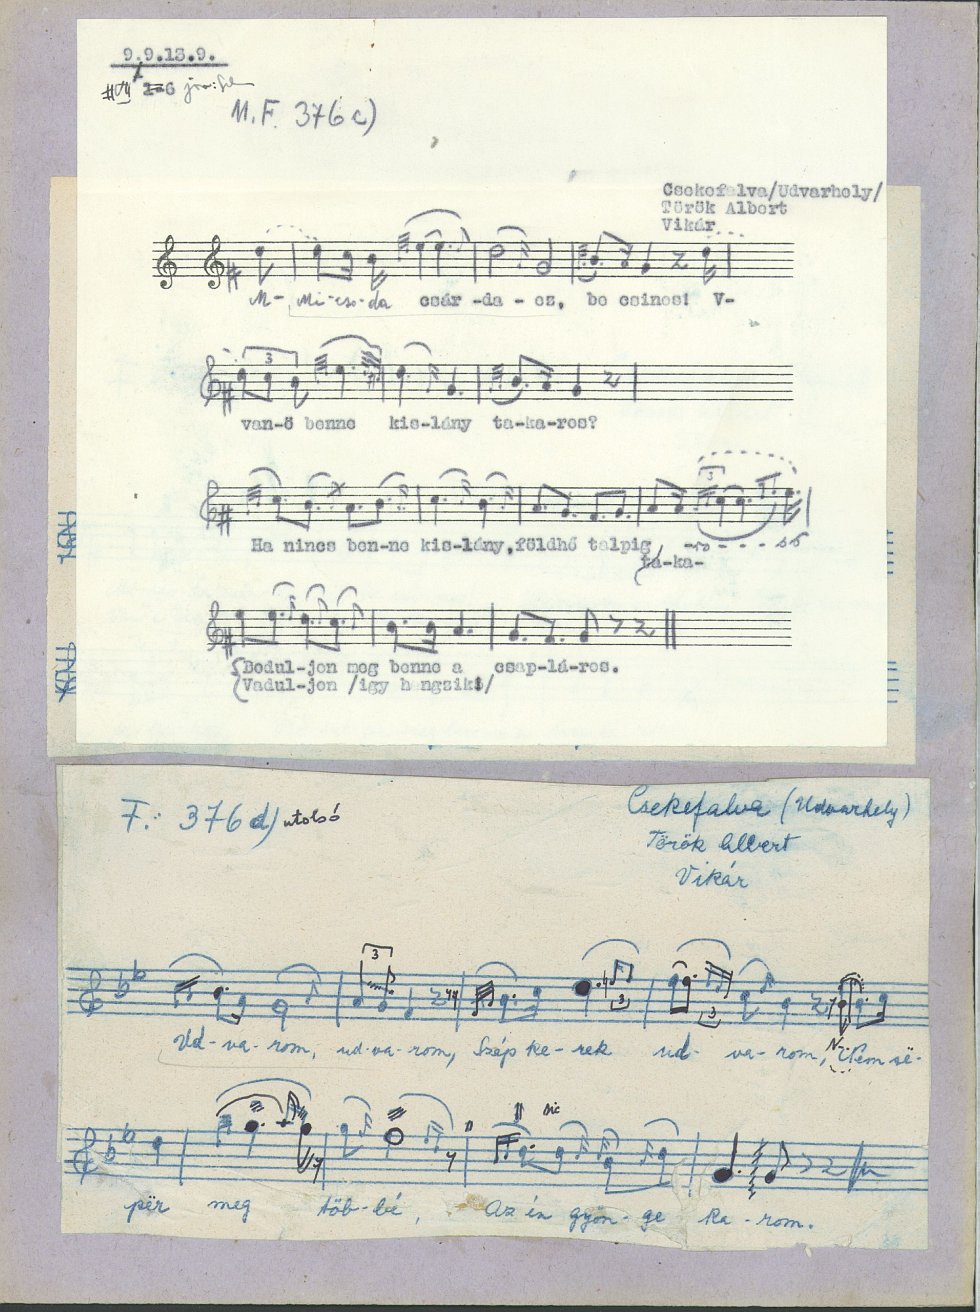 9.9.13.9.
1-6
M.F. 376 c)
Csekefalva/Udvarhely/
Török Albert
Vikár
M- Mi-cso-da csár-da - ez, be csinos! V-
3
van-ë benne kis-lány ta-ka-ros?
3
Ha nincs ben-ne kis-lány, földhö talpig
ta-ka- -ro - - - - ss
Bodul-jon meg benne a csap-lá-ros.
Vadul-jon /igy hangzik!/
F.: 376 d) utolsó
Csekefalva (Udvarhely)
Török Albert
Vikár
3
3
3
Ud-va-rom, ud-va-rom, Szép ke-rek ud- va-rom, N- Nem së-
sic
për meg töb-bé, Az én gyön-ge ka-rom.